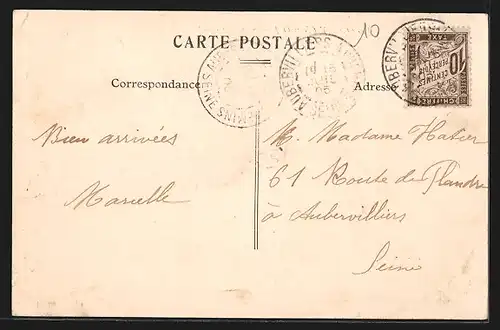 10
CARTE POSTALE
Correspondance
Adresse
AUBERVILLIERS
10
CENTIMES
À PERCEVOIR
CHIFFRE
TAXE
Bien arrivées
Marcelle
M. Madame Hatier
61 Route de Flandre
à Aubervilliers
Seine